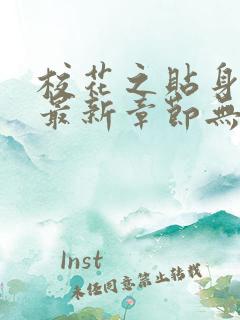 校花之貼身
最新章節無
lnst
未经同意禁止转载